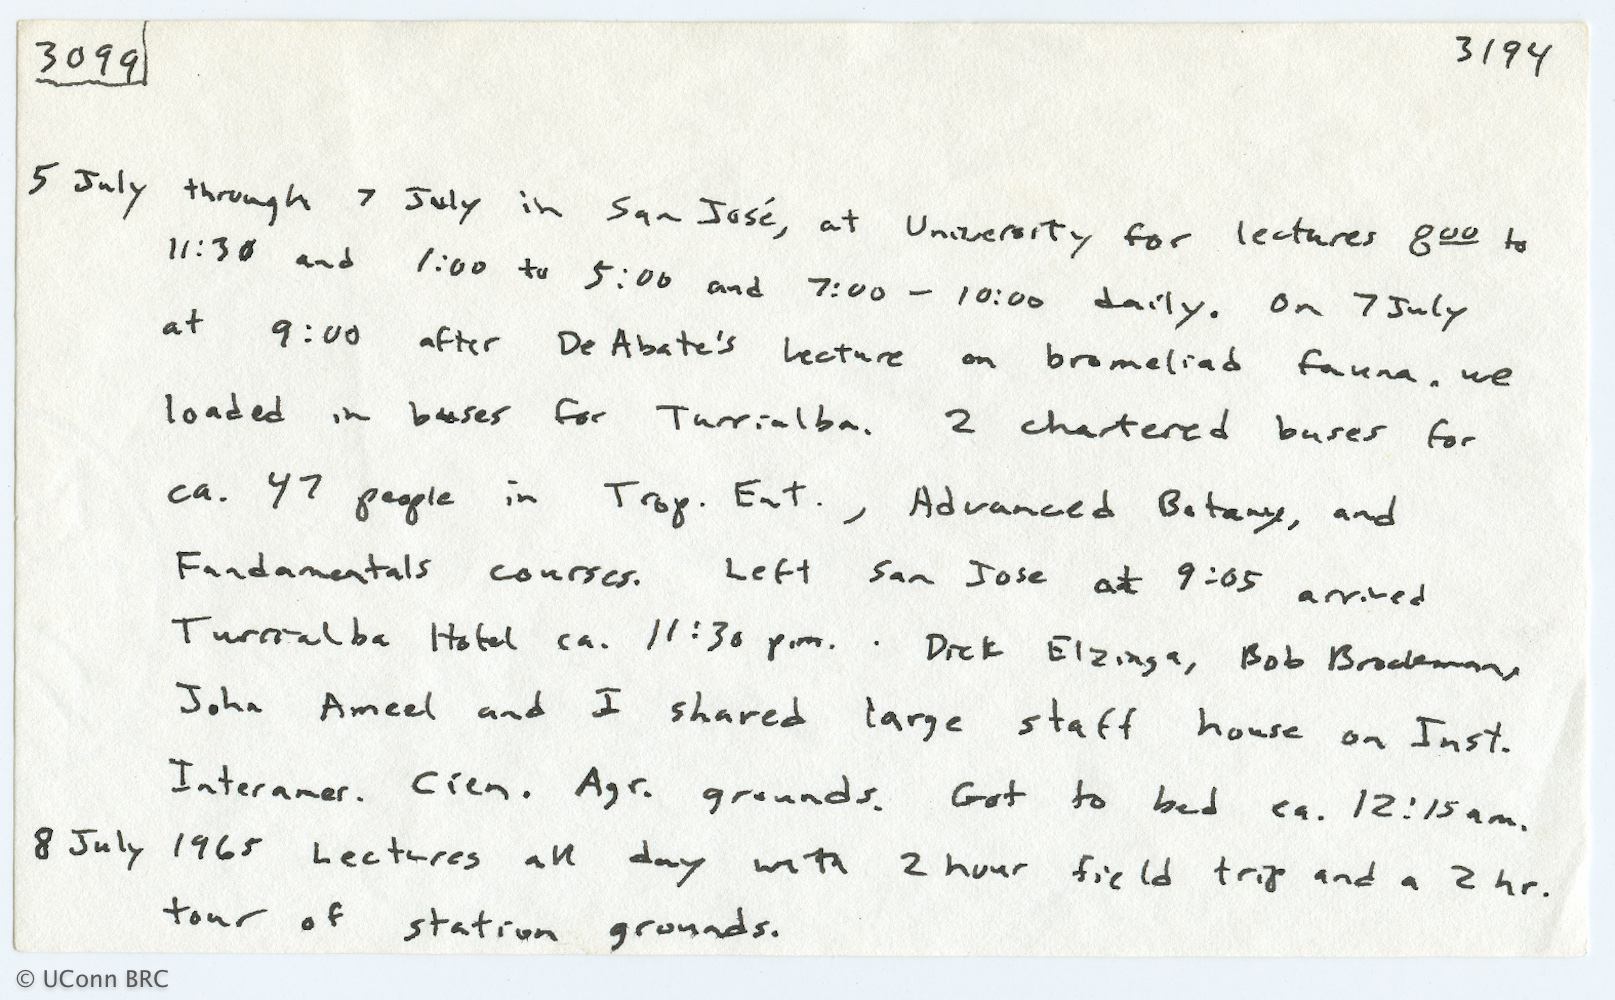 3099 3194
5 July through 7 July in San José, at University for lectures 800 to
11:30 and 1:00 to 5:00 and 7:00 – 10:00 daily. On 7 July
at 9:00 after De Abate's lecture on bromeliad fauna. we
loaded in buses for Turrialba. 2 chartered buses for
ca. 47 people in Trop. Ent., Advanced Botany, and
Fundamentals courses. Left San Jose at 9:05 arrived
Turrialba Hotel ca. 11:30 p.m. . Dick Elzinga, Bob Brockman,
John Ameel and I shared large staff house on Inst.
Interamer. Cien. Agr. grounds. Got to bed ca. 12:15 am.
8 July 1965 Lectures all day with 2 hour field trip and a 2 hr.
tour of station grounds.
© UConn BRC